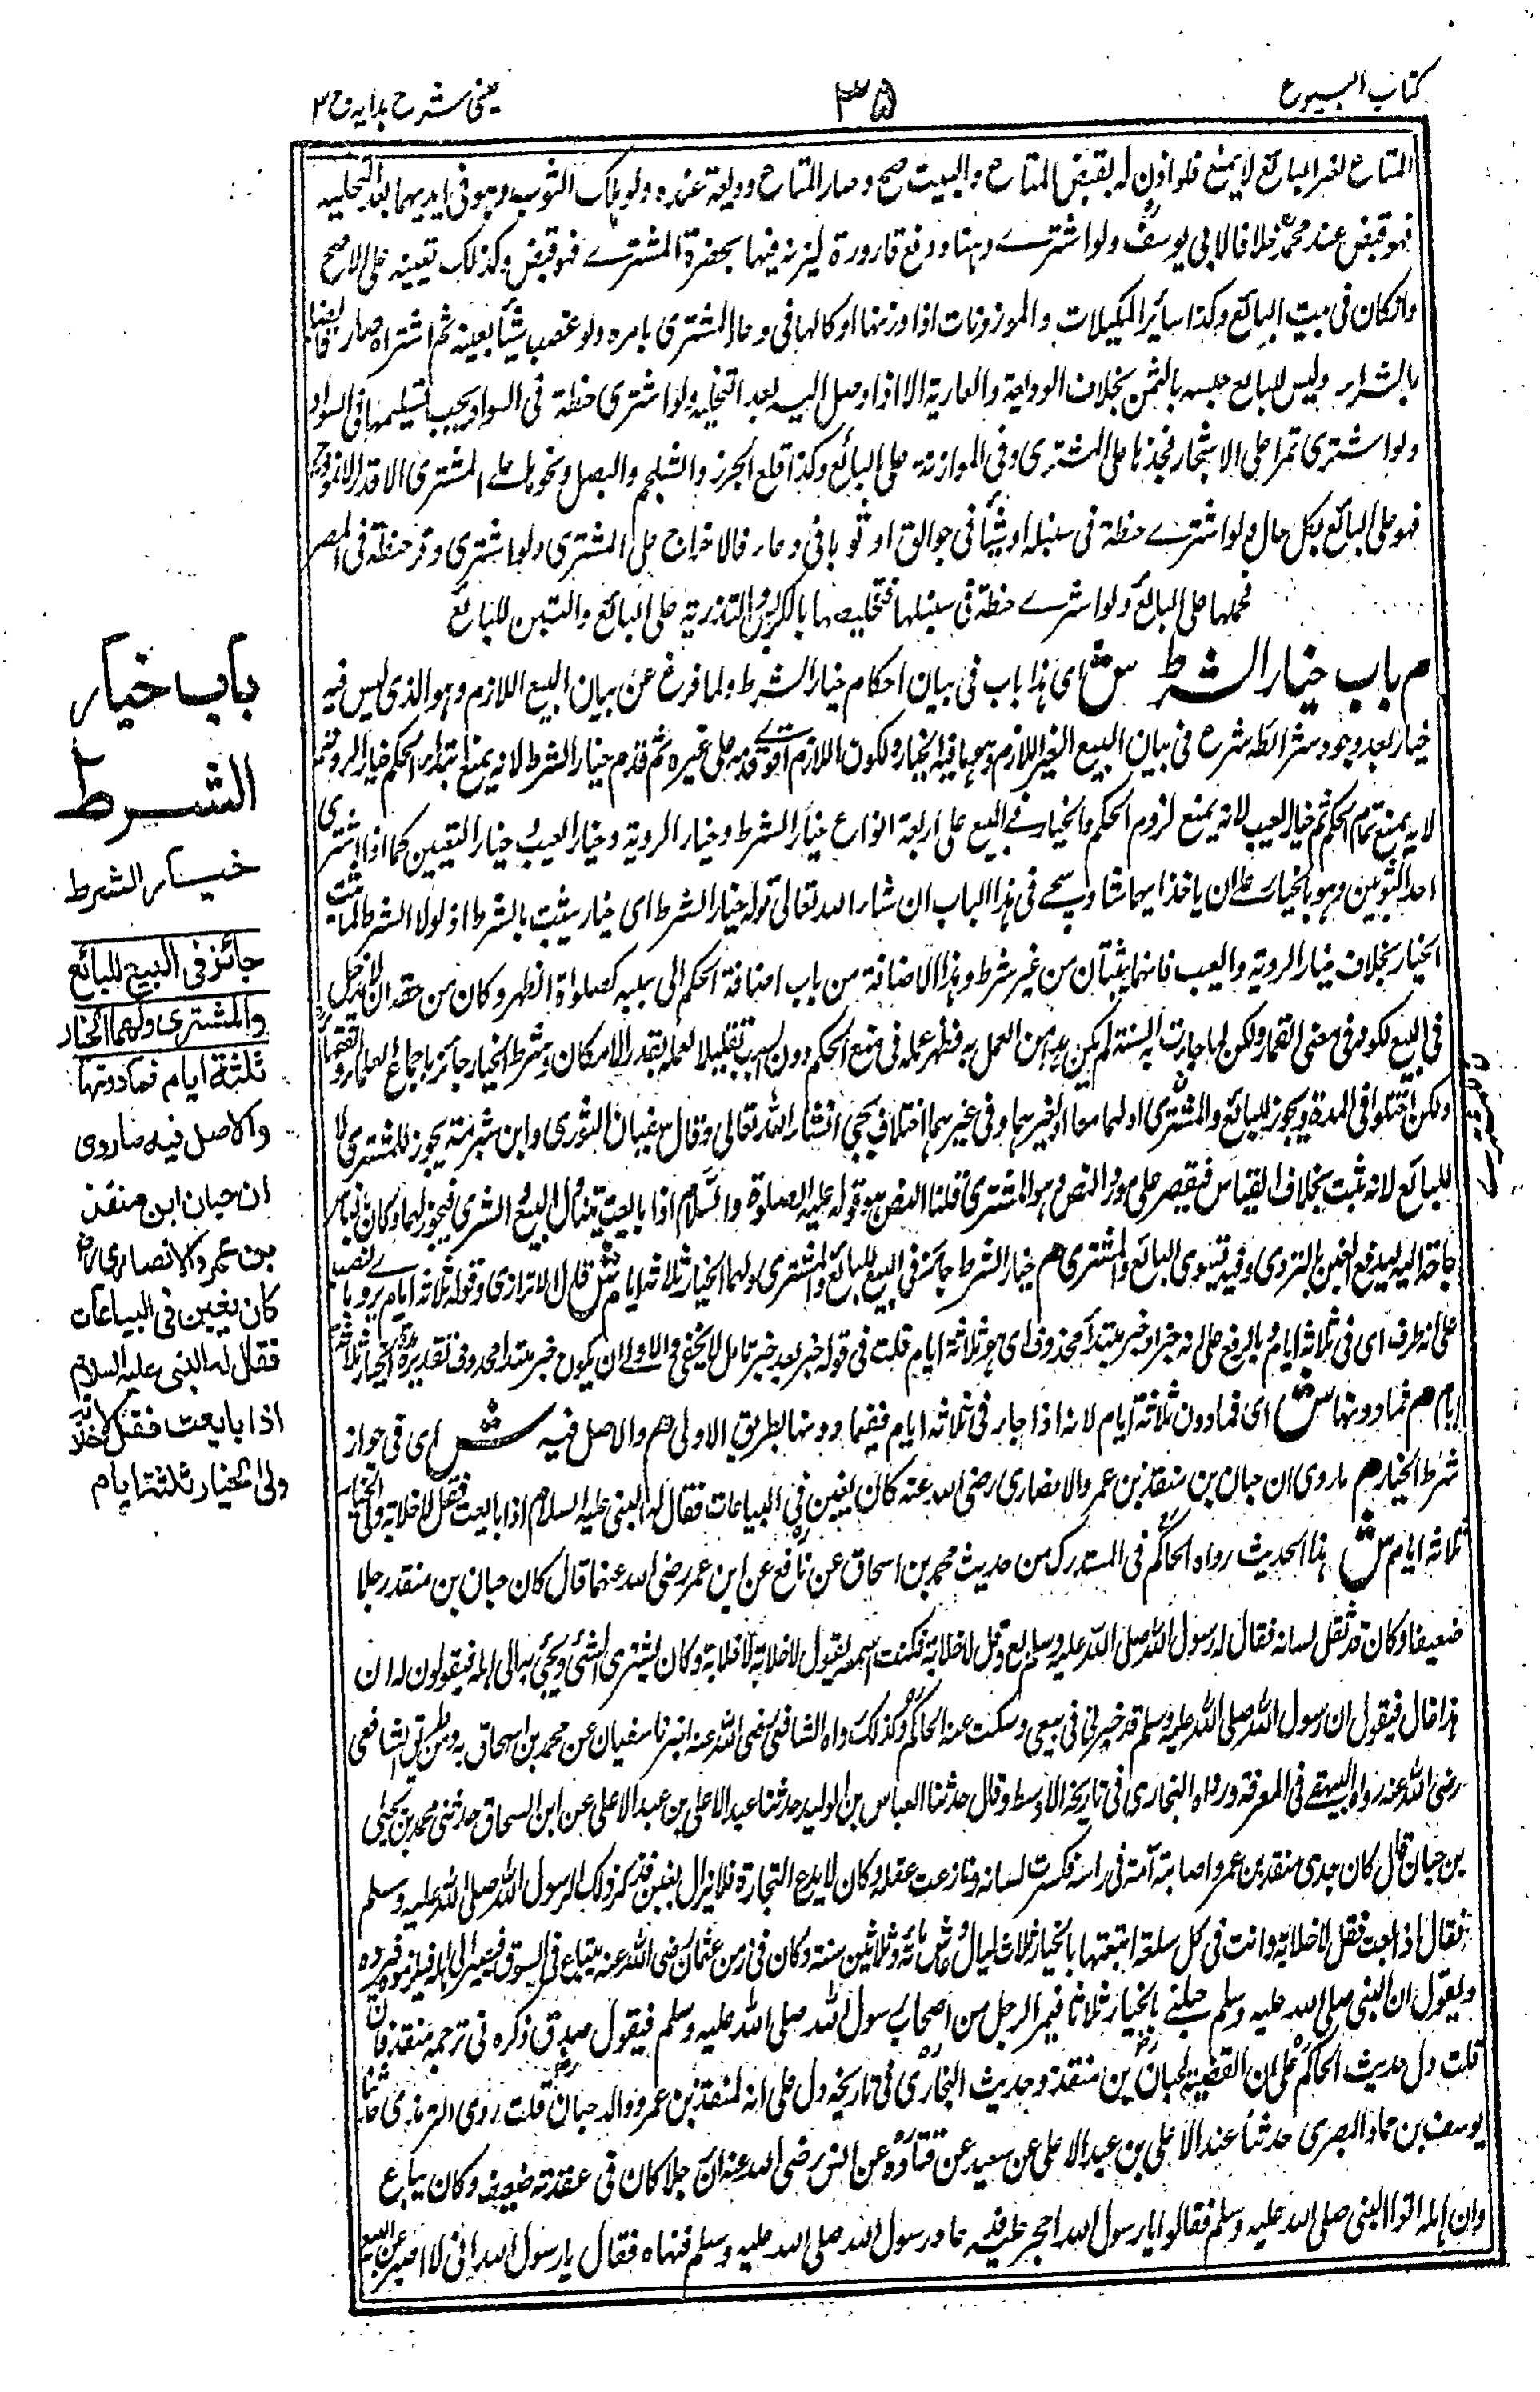 کتاب البیوع
۳۵
عینی شرح ہدایہ ج ۳
المتاع لغیر البائع لا یمنع فلو اذن له بقبض المتاع والبیت صح وصار المتاع ودیعة عنده ولو ہلک الثوب وہو فی ایدیہما بعد التخلیه
فہو قبض عند محمد خلافا لابی یوسف ولو اشترے دہنا ودفع قارورة لیزنه فیہا بحضرة المشترے فہو قبض وکذلک تعیینه علی الاصح
وان کان فی بیت البائع وکذا سائر المکیلات والموزونات اذا وزنہا او کالہا فی وعاء المشتری بامره ولو غصب شیئا بعینه ثم اشتراه صار قابضا
بالشراء ولیس للبائع حبسه بالثمن بخلاف الودیعة والعاریة الا اذا وصل الیه بعد التخلیه ولو اشتری حنطة فی السواد یجب تسلیمہا فی السواد
ولو اشتری تمرا علی الاشجار فجذہا علی المشتری وفی الموازنة علی البائع وکذا قلع الجزر والشلجم والبصل ونحوہا علے المشتری الا قدر الانموذج
فہو علی البائع بکل حال ولو اشترے حنطة فی سنبله او شیئا فی جوالق او ثوبا فی وعاء فالاخراج علی المشتری ولو اشتری وقر حنطة فی المصر
فحملہا علی البائع ولو اشترے حنطة فی سنبلہا فتخلیصہا بالکدس والتذریة علی البائع والتبن للبائع
م باب خیار الشرط ش ای ہذا باب فی بیان احکام خیار الشرط ولما فرغ عن بیان البیع اللازم وہو الذی لیس فیه
خیار بعد وجود شرائطه شرع فی بیان البیع الغیر اللازم وہو ما فیه الخیار ولکون اللازم اقوی قدمه علی غیره ثم قدم خیار الشرط لانه یمنع ابتداء الحکم ثم خیار الرویة
لانه یمنع تمام الحکم ثم خیار العیب لانه یمنع لزوم الحکم والخیار فے البیع علی اربعة انواع خیار الشرط وخیار الرویة وخیار العیب وخیار التعیین کما اذا اشتری
احد الثوبین وہو بالخیار علے ان یاخذ ایہما شاء وسیجے فی ہذا الباب ان شاء الله تعالی قوله خیار الشرط ای خیار یثبت بالشرط اذ لولا الشرط لما یثبت
الخیار بخلاف خیار الرویة والعیب فانہما یثبتان من غیر شرط وہذا الاضافة من باب اضافة الحکم الی سببه کصلواة الظہر وکان من حقه ان لا یدخل
فی البیع لکونه فی معنی القمار ولکن لما جاءت به السنة لم یکن بد من العمل به فظہر عمله فی منع الحکم دون السبب تقلیلا لعمله بقدر الامکان وشرط الخیار جائز باجماع العلماء والفقہاء
ولکن اختلفوا فی المدة ویجوز للبائع والمشتری او لہما معا او لغیرہما وفی غیرہما اختلاف یجئ انشاء الله تعالی وقال سفیان الثوری وابن شبرمة یجوز للمشتری لا
للبائع لانه ثبت بخلاف القیاس فیقتصر علی مورد النص وہو المشتری قلنا النص ہو قوله علیه الصلوة والسلام اذا بایعت یتناول البیع والشری فیجوز لہما وکان الناس
حاجة الیه لیدفع الغبن بالتروی وفیه یستوی البائع والمشتری م خیار الشرط جائز فی البیع للبائع والمشتری ولہما الخیار ثلاثة ایام ش قال الاترازی وقوله ثلاثة ایام یروی بالنصب
علی انه ظرف ای فی ثلاثة ایام وبالرفع علی انه خبر او خبر مبتدأ محذوف ای ہو ثلاثة ایام قلت فی قوله خبر بعد خبر تامل لا یخفی والاولی ان یکون خبر مبتدا محذوف تقدیره مدة الخیار ثلاثة
ایام م فما دونہا ش ای فما دون ثلاثة ایام لانه اذا جاز فی ثلاثة ایام ففیما دونہا بطریق الاولی م والاصل فیه ش ای فی جواز
شرط الخیار م ماروی ان حبان بن منقذ بن عمرو الانصاری رضی الله عنه کان یغبن فی البیاعات فقال له النبی علیه السلام اذا بایعت فقل لا خلابة ولی الخیار
ثلاثة ایام ش ہذا الحدیث رواه الحاکم فی المستدرک من حدیث محمد بن اسحاق عن نافع عن ابن عمر رضی الله عنہما قال کان حبان بن منقذ رجلا
ضعیفا وکان قد ثقل لسانه فقال له رسول الله صلی الله علیه وسلم بع وقل لا خلابة فکنت اسمعه یقول لا خلابة لا خلابة وکان یشتری الشئ ویجئ به الی اہله فیقولون له ان
ہذا غال فیقول ان رسول الله صلی الله علیه وسلم قد خیرنی فی بیعی وسکت عنه الحاکم وکذلک رواه الشافعی رضی الله عنه اخبرنا سفیان عن محمد بن اسحاق به ومن طریق الشافعی
رضی الله عنه رواه البیہقے فی المعرفة ورواه البخاری فی تاریخه الاوسط وقال حدثنا العباس بن الولید حدثنا عبد الاعلی بن عبد الاعلی عن ابن اسحاق حدثنی محمد بن یحیٰی
بن حبان قال کان جدی منقذ بن عمرو اصابته آمة فی راسه فکسرت لسانه ونازعت عقله وکان لا یدع التجارة فلا یزال یغبن فذکر ذلک لرسول الله صلی الله علیه وسلم
فقال اذا بعت فقل لا خلابة وانت فی کل سلعة ابتعتہا بالخیار ثلاث لیال وعاش مائة وثلاثین سنة وکان فی زمن عثمان رضی الله عنه یبتاع فی السوق فیصیر الی اہله فیلومونه فیرده
ویقول ان النبی صلی الله علیه وسلم جعلنے بالخیار ثلاثا فیمر الرجل من اصحاب رسول الله صلی الله علیه وسلم فیقول صدق ذکره فی ترجمة منقذ فان
قلت دل حدیث الحاکم علی ان القضیة لحبان بن منقذ وحدیث البخاری فی تاریخه دل علی انه لمنقذ بن عمرو والد حبان قلت روی الترمذی حدثنا
یوسف بن حماد البصری حدثنا عبد الاعلی بن عبد الاعلی عن سعید عن قتادة عن انس رضی الله عنه ان رجلا کان فی عقدته ضعف وکان یبایع
وان اہله اتوا النبی صلی الله علیه وسلم فقالوا یا رسول الله احجر علیه فدعاه رسول الله صلی الله علیه وسلم فنہاه فقال یا رسول الله انی لا اصبر عن البیع
باب خیار
الشرط
خیار الشرط
جائز فی البیع للبائع
والمشتری ولہما الخیار
ثلثة ایام فما دونہا
والاصل فیه ما روی
ان حبان ابن منقذ
بن عمرو الانصاری رض
کان یغبن فی البیاعات
فقال له النبی علیه السلام
اذا بایعت فقل لا خلابة
ولی الخیار ثلثة ایام